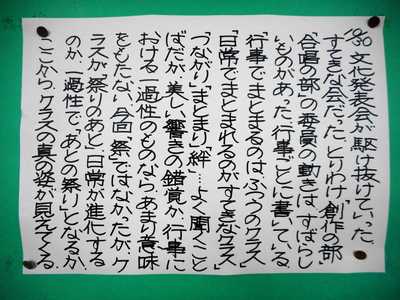 10/30 文化発表会が駆け抜けていった、
すてきな会だった、とりわけ「創作の部」
「合唱の部」の委員の動きは、すばらし
いものがあった、行事ごとに書いている、
「行事でまとまるのは、ふつうのクラス」
「日常でまとまれるのがすてきなクラス」
「つながり」「まとまり」「絆」…よく聞くこと
ばだが、美しい響きの錯覚か、行事に
おける一過性のものなら、あまり意味
をもたない、今回「祭」ではなかったが、ク
ラスが「祭りのあと」、日常が進化する
のか、一過性で「あとの祭り」となるか、
ここから、クラスの真の姿が見えてくる、